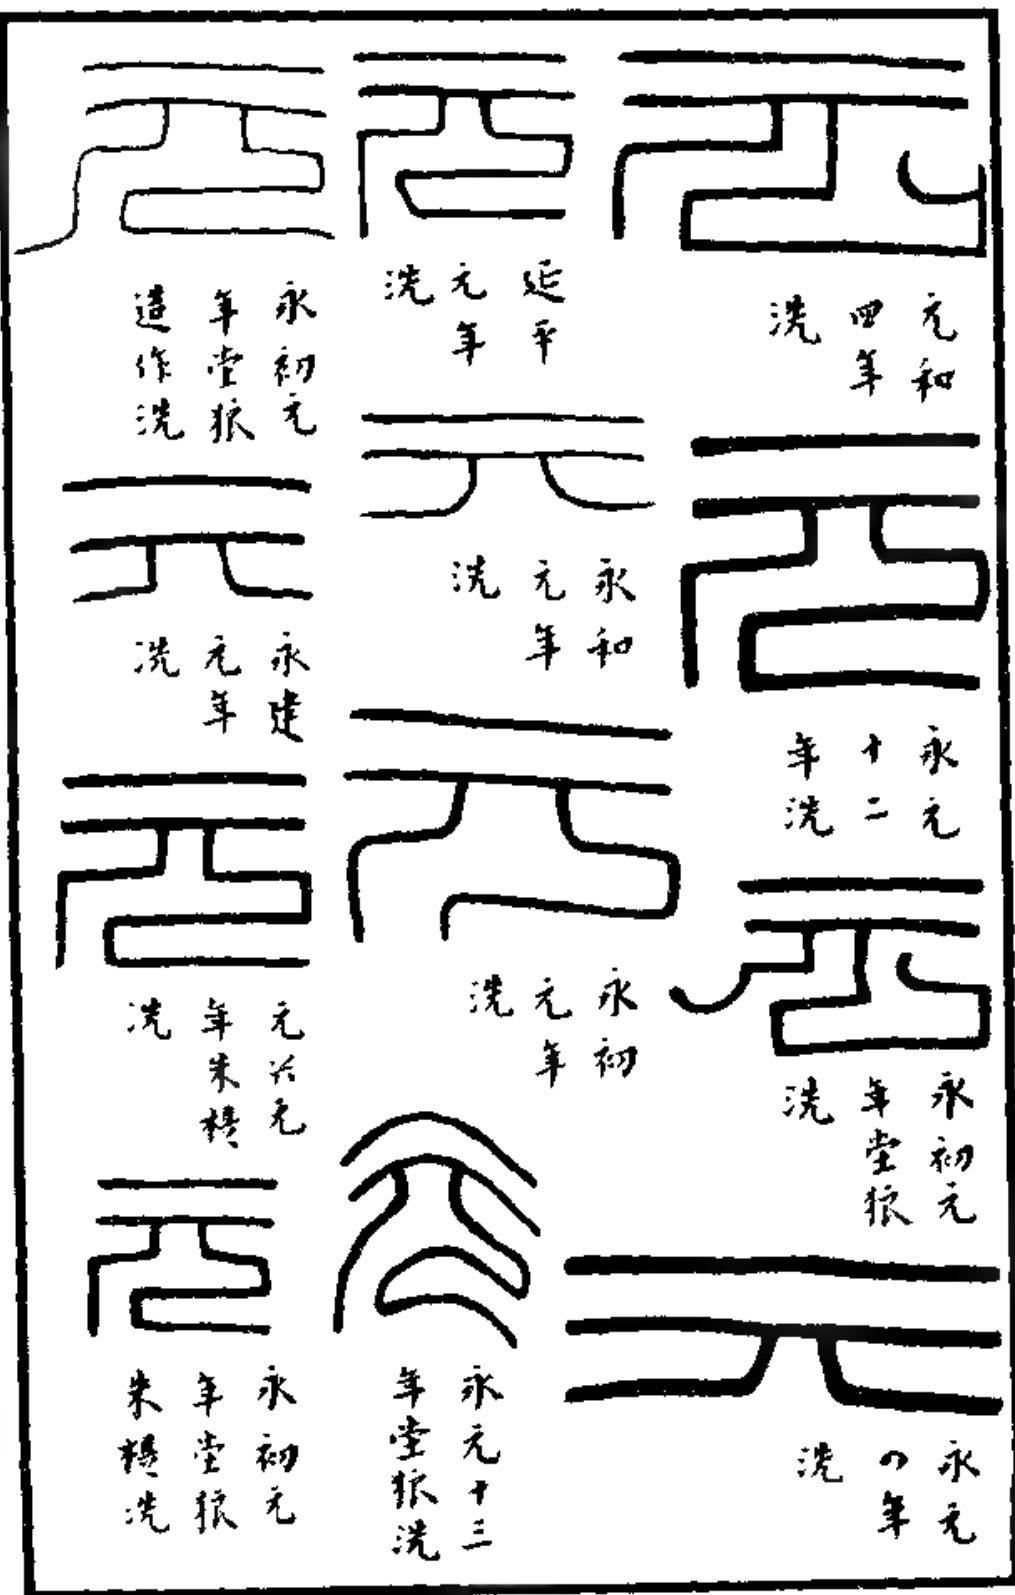 元
元和
四年
洗
元
永元
十二
年洗
元
永初元
年堂狼
洗
元
永元
四年
洗
元
延平
元年
洗
元
永和
元年
洗
元
永初
元年
洗
元
永元十三
年堂狼洗
元
永初元
年堂狼
造作洗
元
永建
元年
洗
元
元兴元
年朱
洗
元
永初元
年堂狼
朱洗